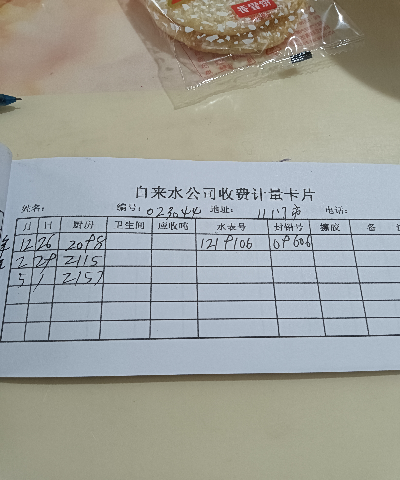 自来水公司收费计量卡片
姓名: 编号: 023044 地址: 电话:
月 日 厨房 卫生间 应收吨 水表号 封铅号 备
12 26 2098 1219106 09606
2 29 2115
5 1 2153